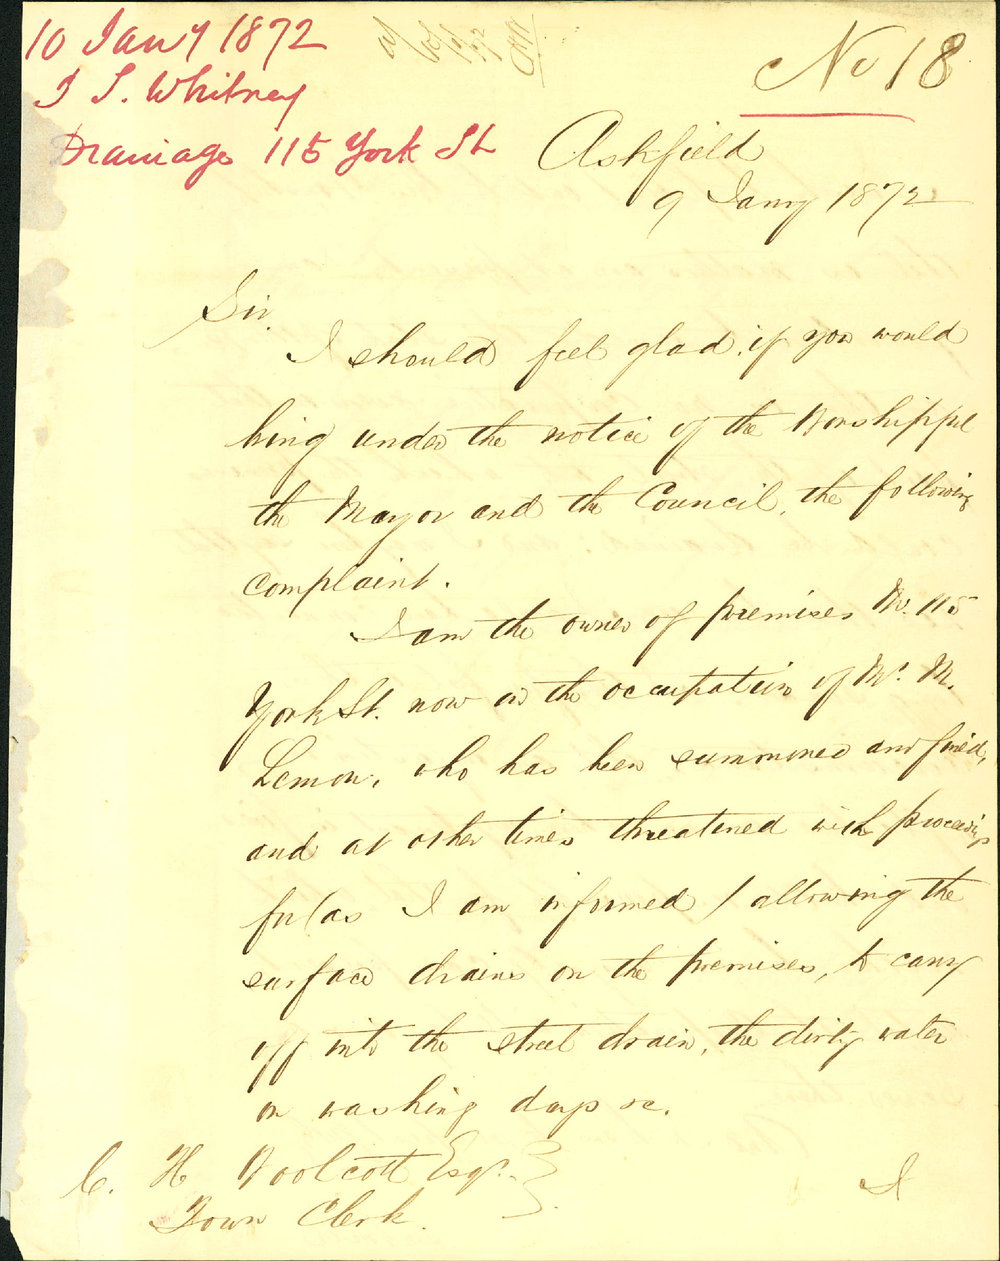 10 Jany 1872
J S. Whitney
Drainage 115 York St
No 18
Ashfield
9 Jany 1872
Sir.
I should feel glad, if you would
bring under the notice of the Worshippful
the Mayor and the Council, the following
complaint.
I am the owner of premises No. 115
York St. now in the occupation of Mr. M.
Lemon, who has been summoned and fined,
and at other times threatened with proceedings
for (as I am informed / allowing the
surface drains on the premises, to carry
off into the street drain, the dirty water
on washing days &c.
I
C. H Woolcott Esqr.
Town Clerk.